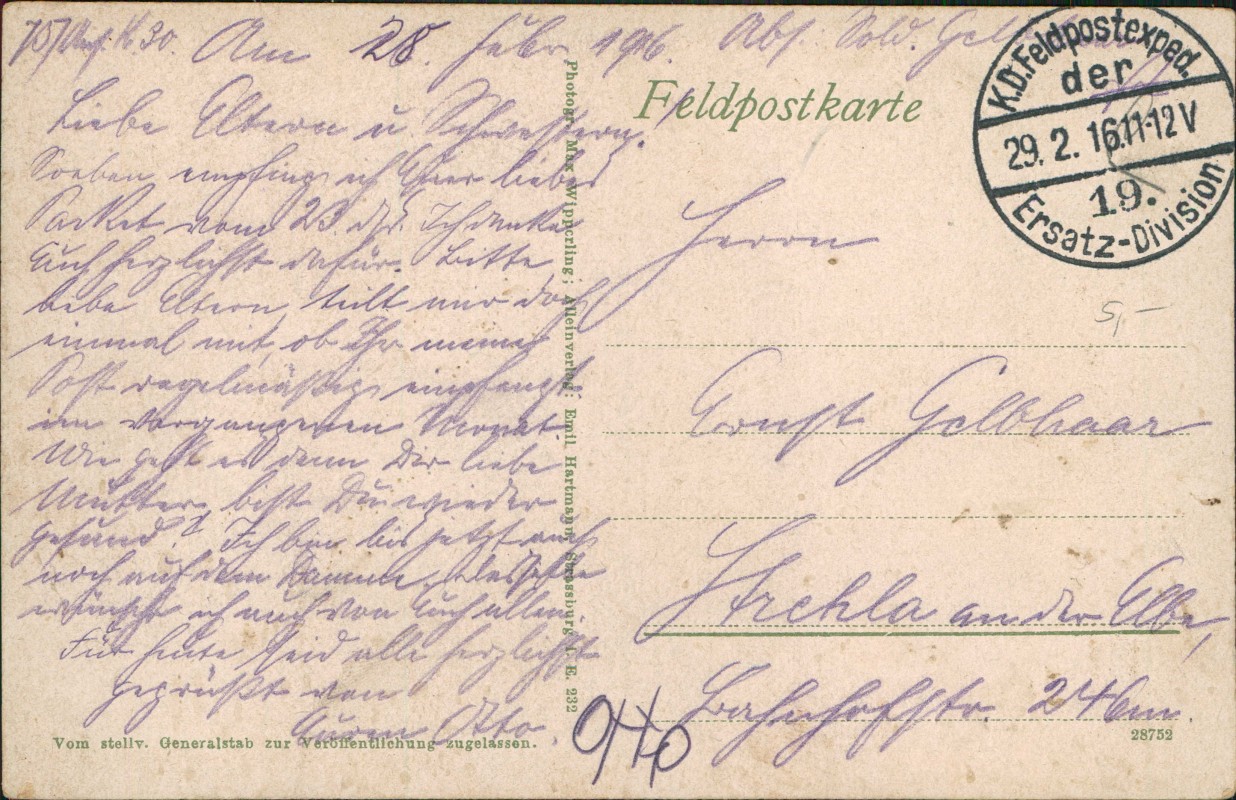 Am 28. Febr. 1916. Abs. Sold. Gelbhaar
Liebe Eltern u. Schwestern.
Soeben empfing ich Euer liebes
Packet vom 23. ds. Ich danke
Euch herzlichst dafür. Bitte
liebe Eltern, teilt mir doch
einmal mit, ob Ihr meine
Post regelmäßig empfangt
im vergangenen Monat.
Wie geht es denn Dir liebe
Mutter, bist Du wieder
gesund? Ich bin bis jetzt auch
noch auf dem Damme, dasselbe
wünsche ich auch von Euch allen.
Für heute seid alle herzlichst
gegrüßt von
Eurem Otto.
Vom stellv. Generalstab zur Veröffentlichung zugelassen.
Photogr. Max Wipperling; Alleinverlag: Emil Hartmann, Strassburg i. E. 232
Feldpostkarte
K.D. Feldpostexped.
der
29. 2. 16. 11-12 V
19.
Ersatz-Division
5,-
Herrn
Ernst Gelbhaar
Strehla an der Elbe,
Bahnhofstr. 246m.
28752